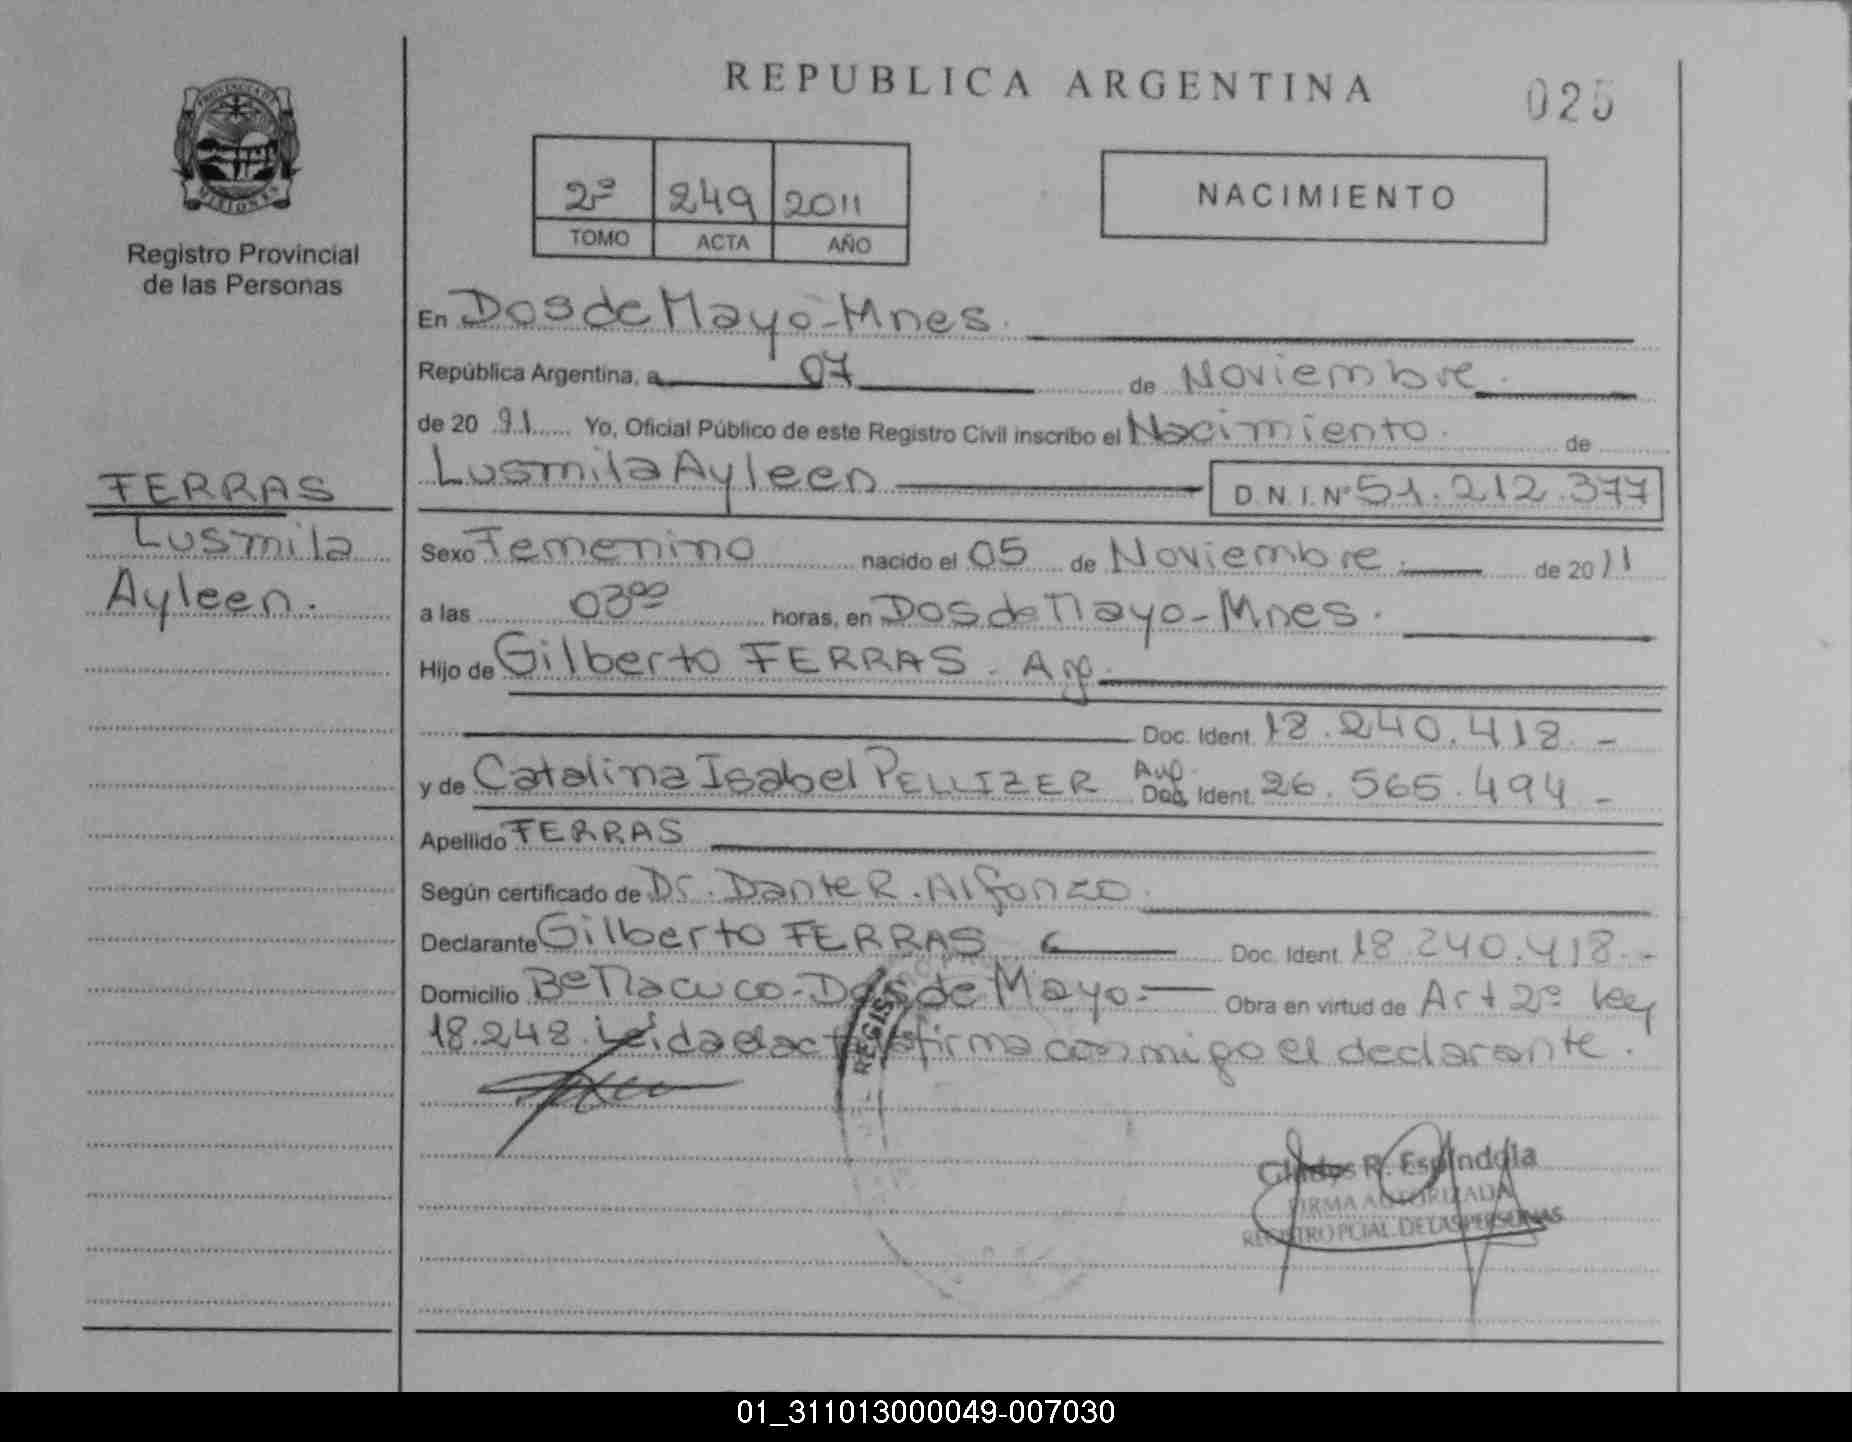 REPUBLICA ARGENTINA
025
PROVINCIA DE
MISIONES
Registro Provincial
de las Personas
2º 249 2011
TOMO ACTA AÑO
NACIMIENTO
En Dos de Mayo-Mnes.
República Argentina, a 07 de Noviembre.
de 20 11 Yo, Oficial Público de este Registro Civil inscribo el Nacimiento. de
Lusmila Ayleen D.N.I.Nº 51.212.377
FERRAS
Lusmila
Ayleen.
Sexo Femenino nacido el 05 de Noviembre. de 2011
a las 03⁰⁰ horas, en Dos de Mayo-Mnes.
Hijo de Gilberto FERRAS - Arg.
Doc. Ident. 18.240.418.-
y de Catalina Isabel PELLIZER Arg. Doc. Ident. 26.565.494-
Apellido FERRAS
Según certificado de Dr. Dante R. Alfonzo.
Declarante Gilberto FERRAS Doc. Ident. 18.240.418.-
Domicilio Bº Ñacuco-Dos de Mayo.- Obra en virtud de Art 2º Ley
18.248. Leída el acta firma conmigo el declarante.
REGIS
Gladys R. Espíndola
FIRMA AUTORIZADA
REGISTRO PCIAL. DE LAS PERSONAS
01_311013000049-007030